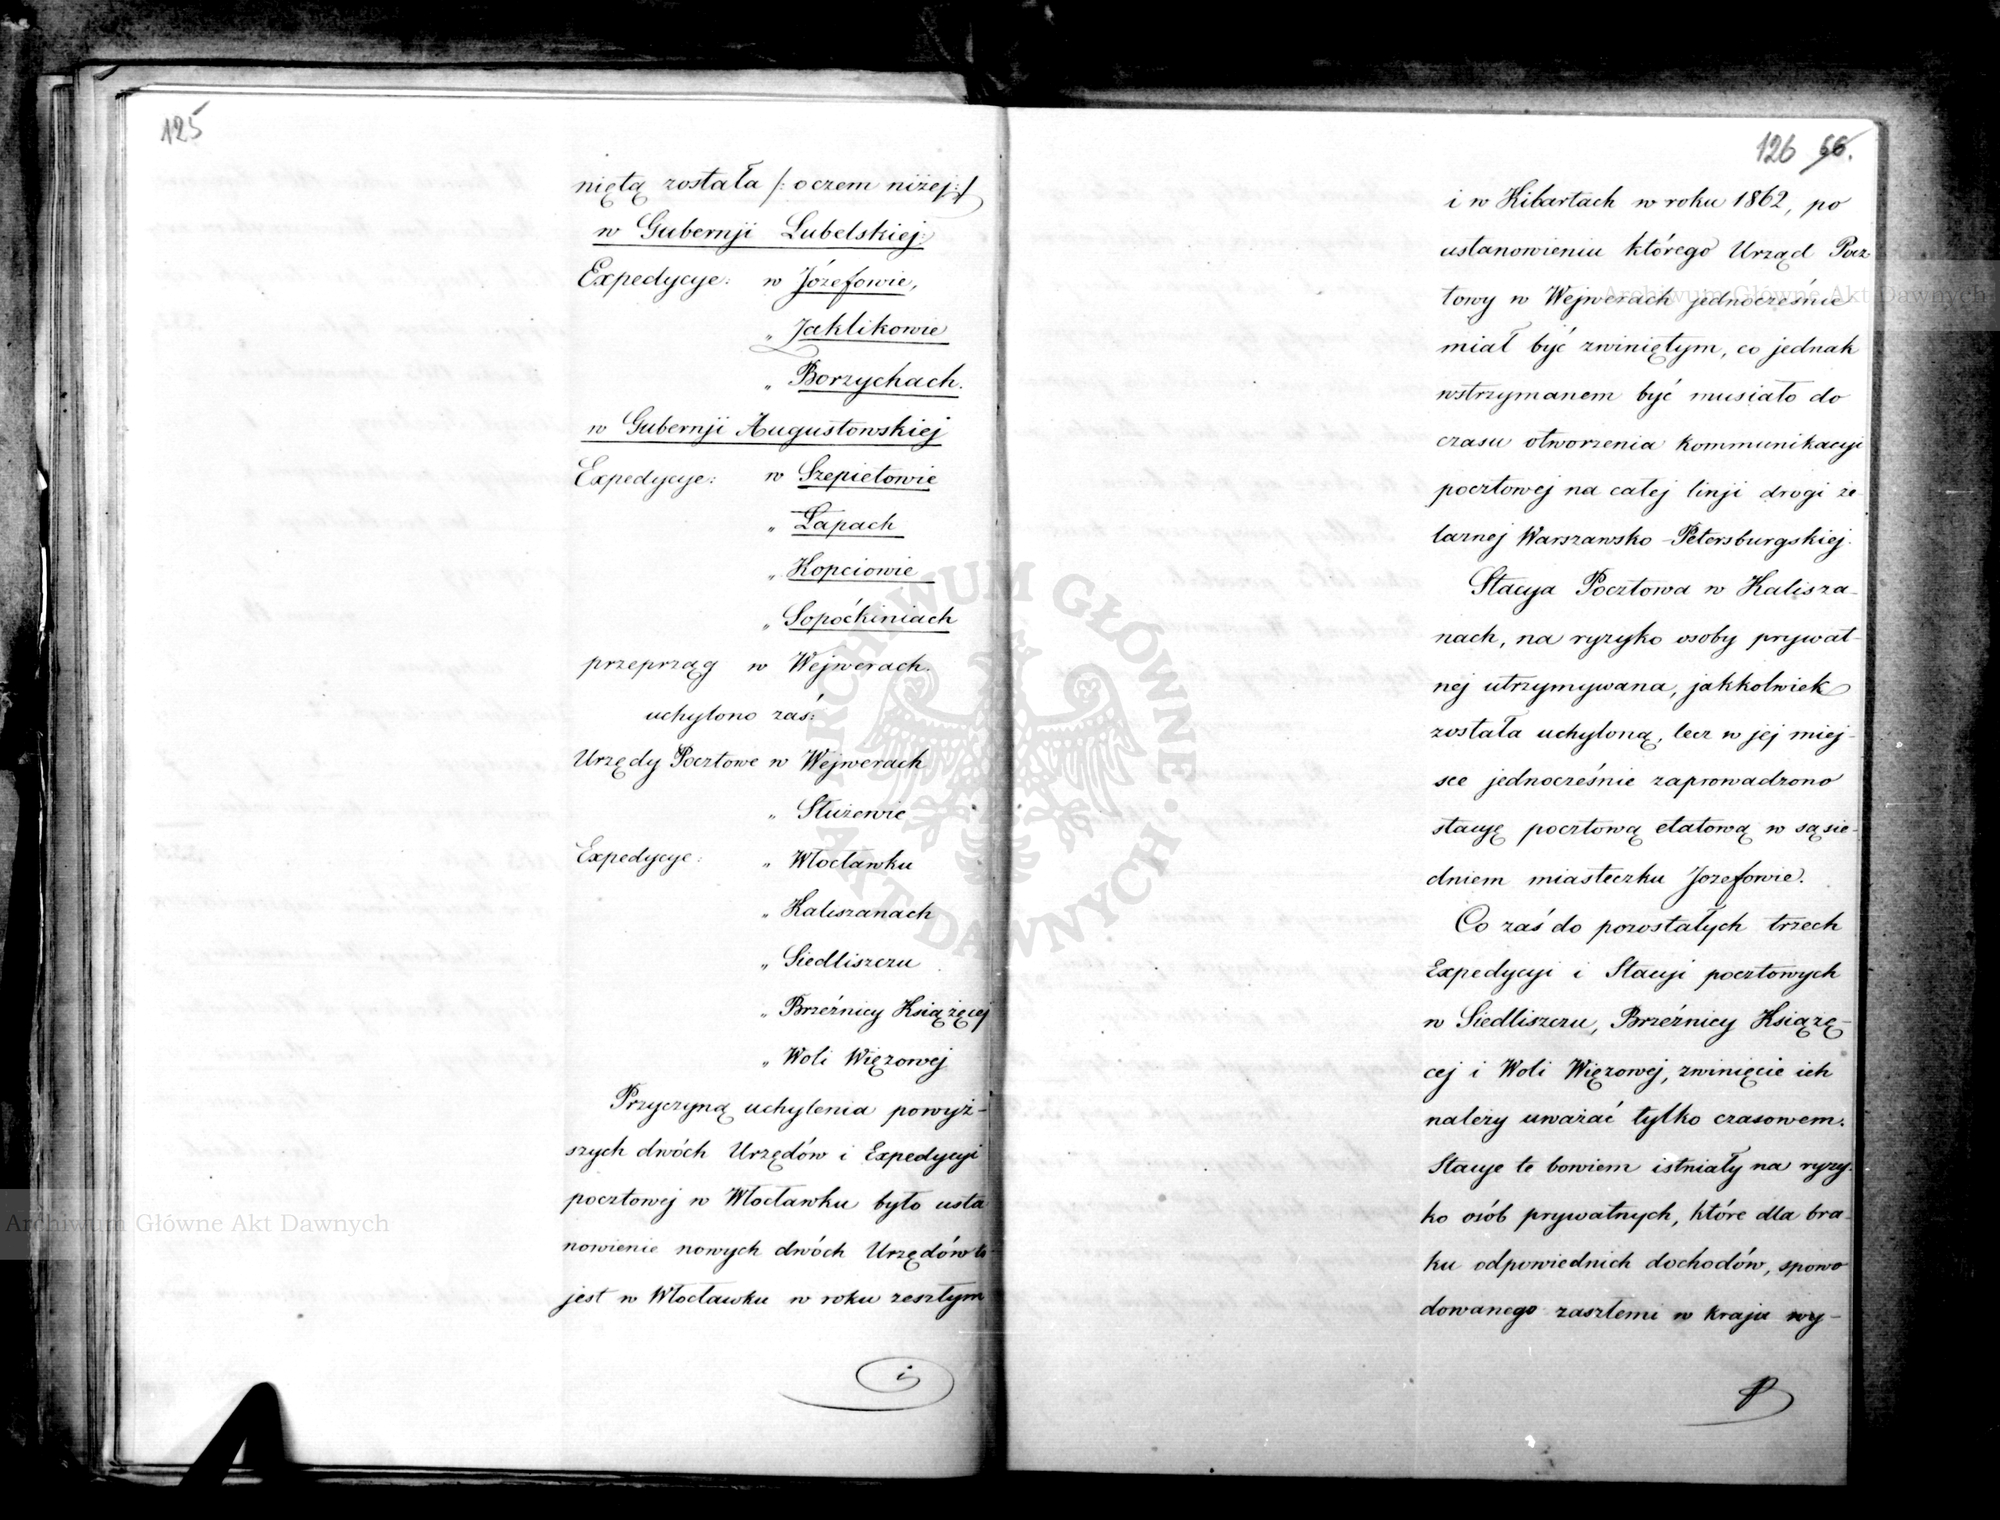 125
niętą została /: o czem niżej :/
w Gubernji Lubelskiej:
Expedycye: w Józefowie,
" Jaklikowie
" Borzychach.
w Gubernji Augustowskiej
Expedycye: w Szepietowie
" Łapach
" Kopciowie
" Sopoćkiniach
przeprząg w Wejwerach.
uchylono zaś:
Urzędy Pocztowe w Wejwerach
" Służewie
Expedycye: " Włocławku
" Kaliszanach
" Siedliszczu
" Brzeźnicy Książęcej
" Woli Więzowej
Przyczyną uchylenia powyż-
szych dwóch Urzędów i Expedycyi
pocztowej w Włocławku było usta
nowienie nowych dwóch Urzędów to
jest w Włocławku w roku zeszłym
i
126 66.
i w Kibartach w roku 1862, po
ustanowieniu którego Urząd Pocz
towy w Wejwerach jednocześnie
miał być zwiniętym, co jednak
wstrzymanem być musiało do
czasu otworzenia kommunikacyi
pocztowej na całej linji drogi że-
laznej Warszawsko-Petersburgskiej.
Stacya Pocztowa w Kalisza-
nach, na ryzyko osoby prywat-
nej utrzymywana, jakkolwiek
została uchyloną, lecz w jej miej-
sce jednocześnie zaprowadzono
stacyę pocztową etatową w sąsie-
dniem miasteczku Jozefowie.
Co zaś do pozostałych trzech
Expedycyi i Stacyi pocztowych
w Siedliszczu, Brzeźnicy Książę-
cej i Woli Więzowej, zwinięcie ich
należy uważać tylko czasowem.
Stacye te bowiem istniały na ryzy-
ko osób prywatnych, które dla bra-
ku odpowiednich dochodów, spowo
dowanego zaszłemi w kraju wy-
ARCHIWUM GŁÓWNE AKT DAWNYCH
Archiwum Główne Akt Dawnych
Archiwum Główne Akt Dawnych